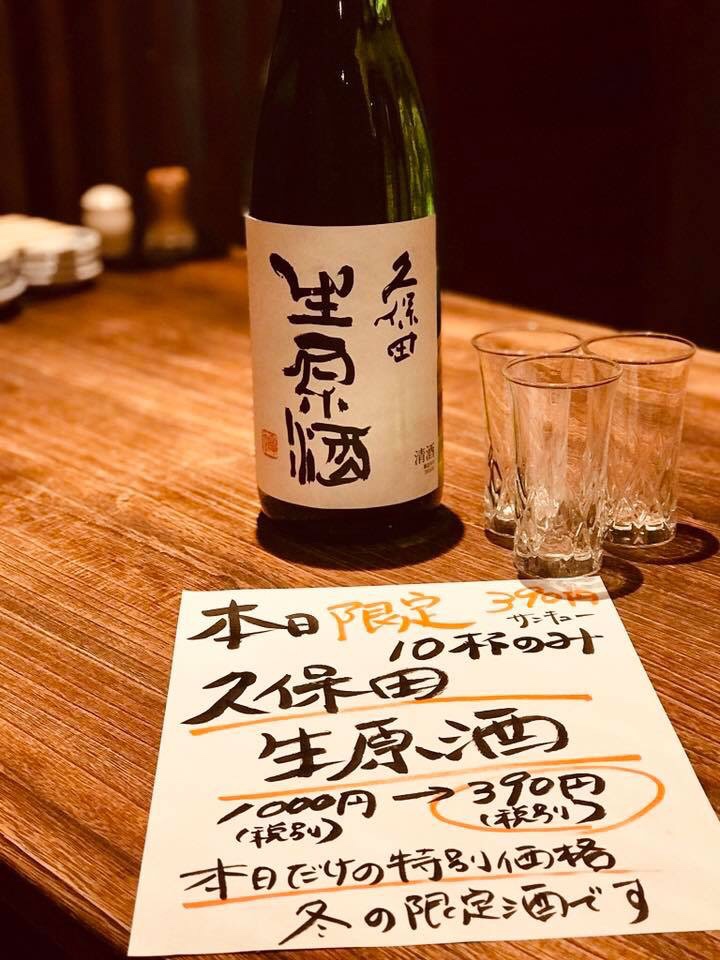 久保田
生原酒
清酒
本日限定 390円
サンキュー
10杯のみ
久保田
生原酒
1000円→390円
(税別) (税別)
本日だけの特別価格
冬の限定酒です